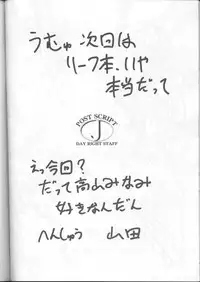 うむゅ次回は
リーフ本、いや
本当だって
POST SCRIPT
J
DAY RIGHT STAFF
えっ今回?
だって高山みなみ
好きなんだん
へんしゅう 山田